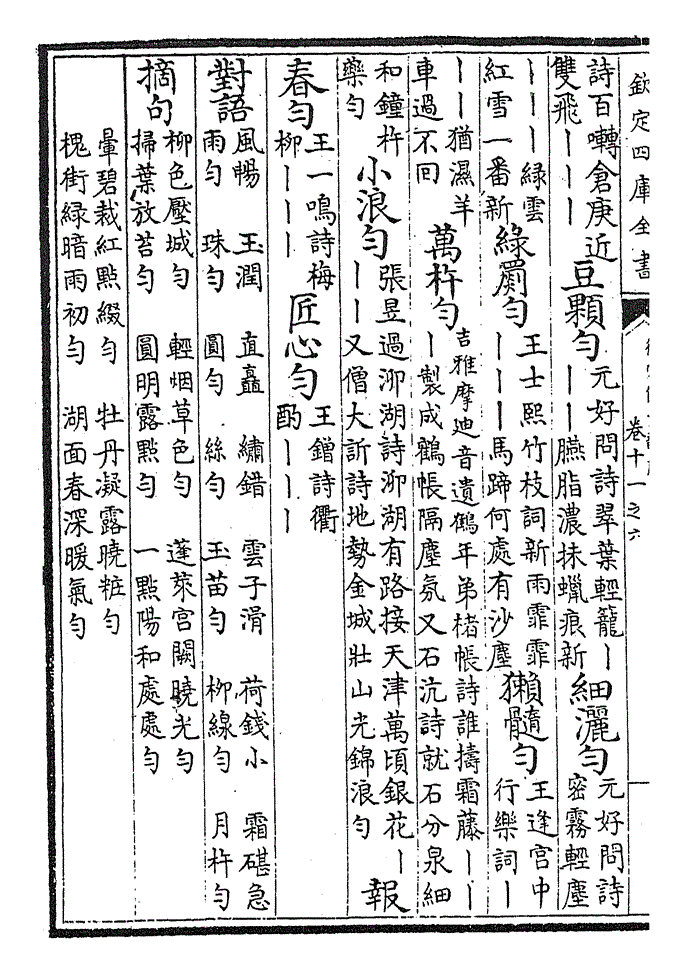 欽定四庫全書
卷十一之六
詩百囀倉庚近
雙飛丨丨丨
豆顆勻
元好問詩翠葉輕籠丨
丨丨臙脂濃抹蠟痕新
細灑勻
元好問詩
密霧輕塵
丨丨丨綠雲
紅雪一番新
綠罽勻
王士熙竹枝詞新雨霏霏
丨丨丨馬蹄何處有沙塵
獺髓勻
王逢宮中
行樂詞丨
丨丨猶濕羊
車過不回
萬杵勻
吉雅摩迪音遺鶴年弟楮帳詩誰擣霜藤丨丨
丨製成鶴帳隔塵氛又石沆詩就石分泉細
和鐘杵
藥勻
小浪勻
張昱過泖湖詩泖湖有路接天津萬頃銀花丨
丨丨又僧大訢詩地勢金城壯山光錦浪勻
報
春勻
王一鳴詩梅
柳丨丨丨
匠心勻
王鏳詩衢
酌丨丨丨
對語
風暢 玉潤 直矗 繡錯 雲子滑 荷錢小 霜碪急
雨勻 珠勻 圓勻 絲勻 玉苗勻 柳線勻 月杵勻
摘句
柳色壓城勻 輕烟草色勻 蓬萊宮闕曉光勻
掃葉放苔勻 圓明露點勻 一點陽和處處勻
暈碧裁紅點綴勻 牡丹凝露曉粧勻
槐街綠暗雨初勻 湖面春深暖氣勻